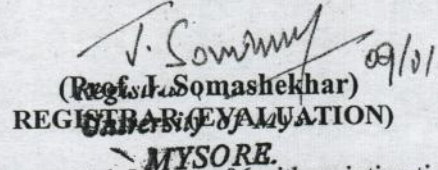 J. Som
09/01
(Prof. J. Somashekhar)
Registrar
REGISTRAR (EVALUATION)
University of Mysore
MYSORE.